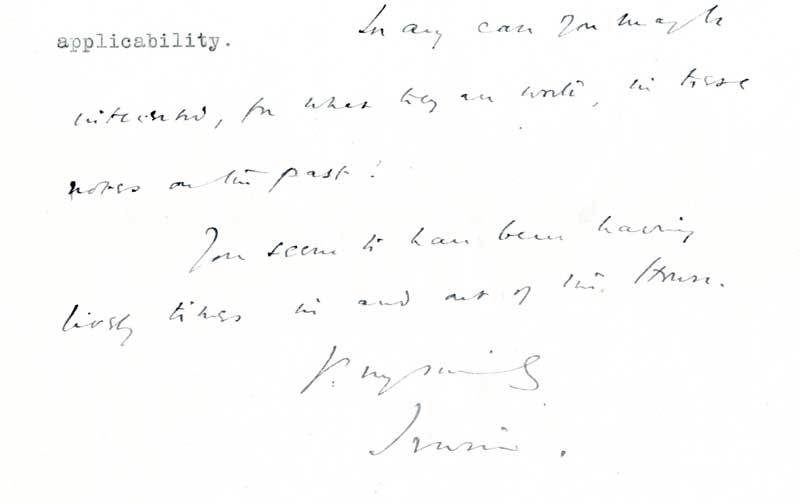 applicability. In any case you may be
interested, for what they are worth, in these
notes on the past!
You seem to have been having
lively times in and out of the House.